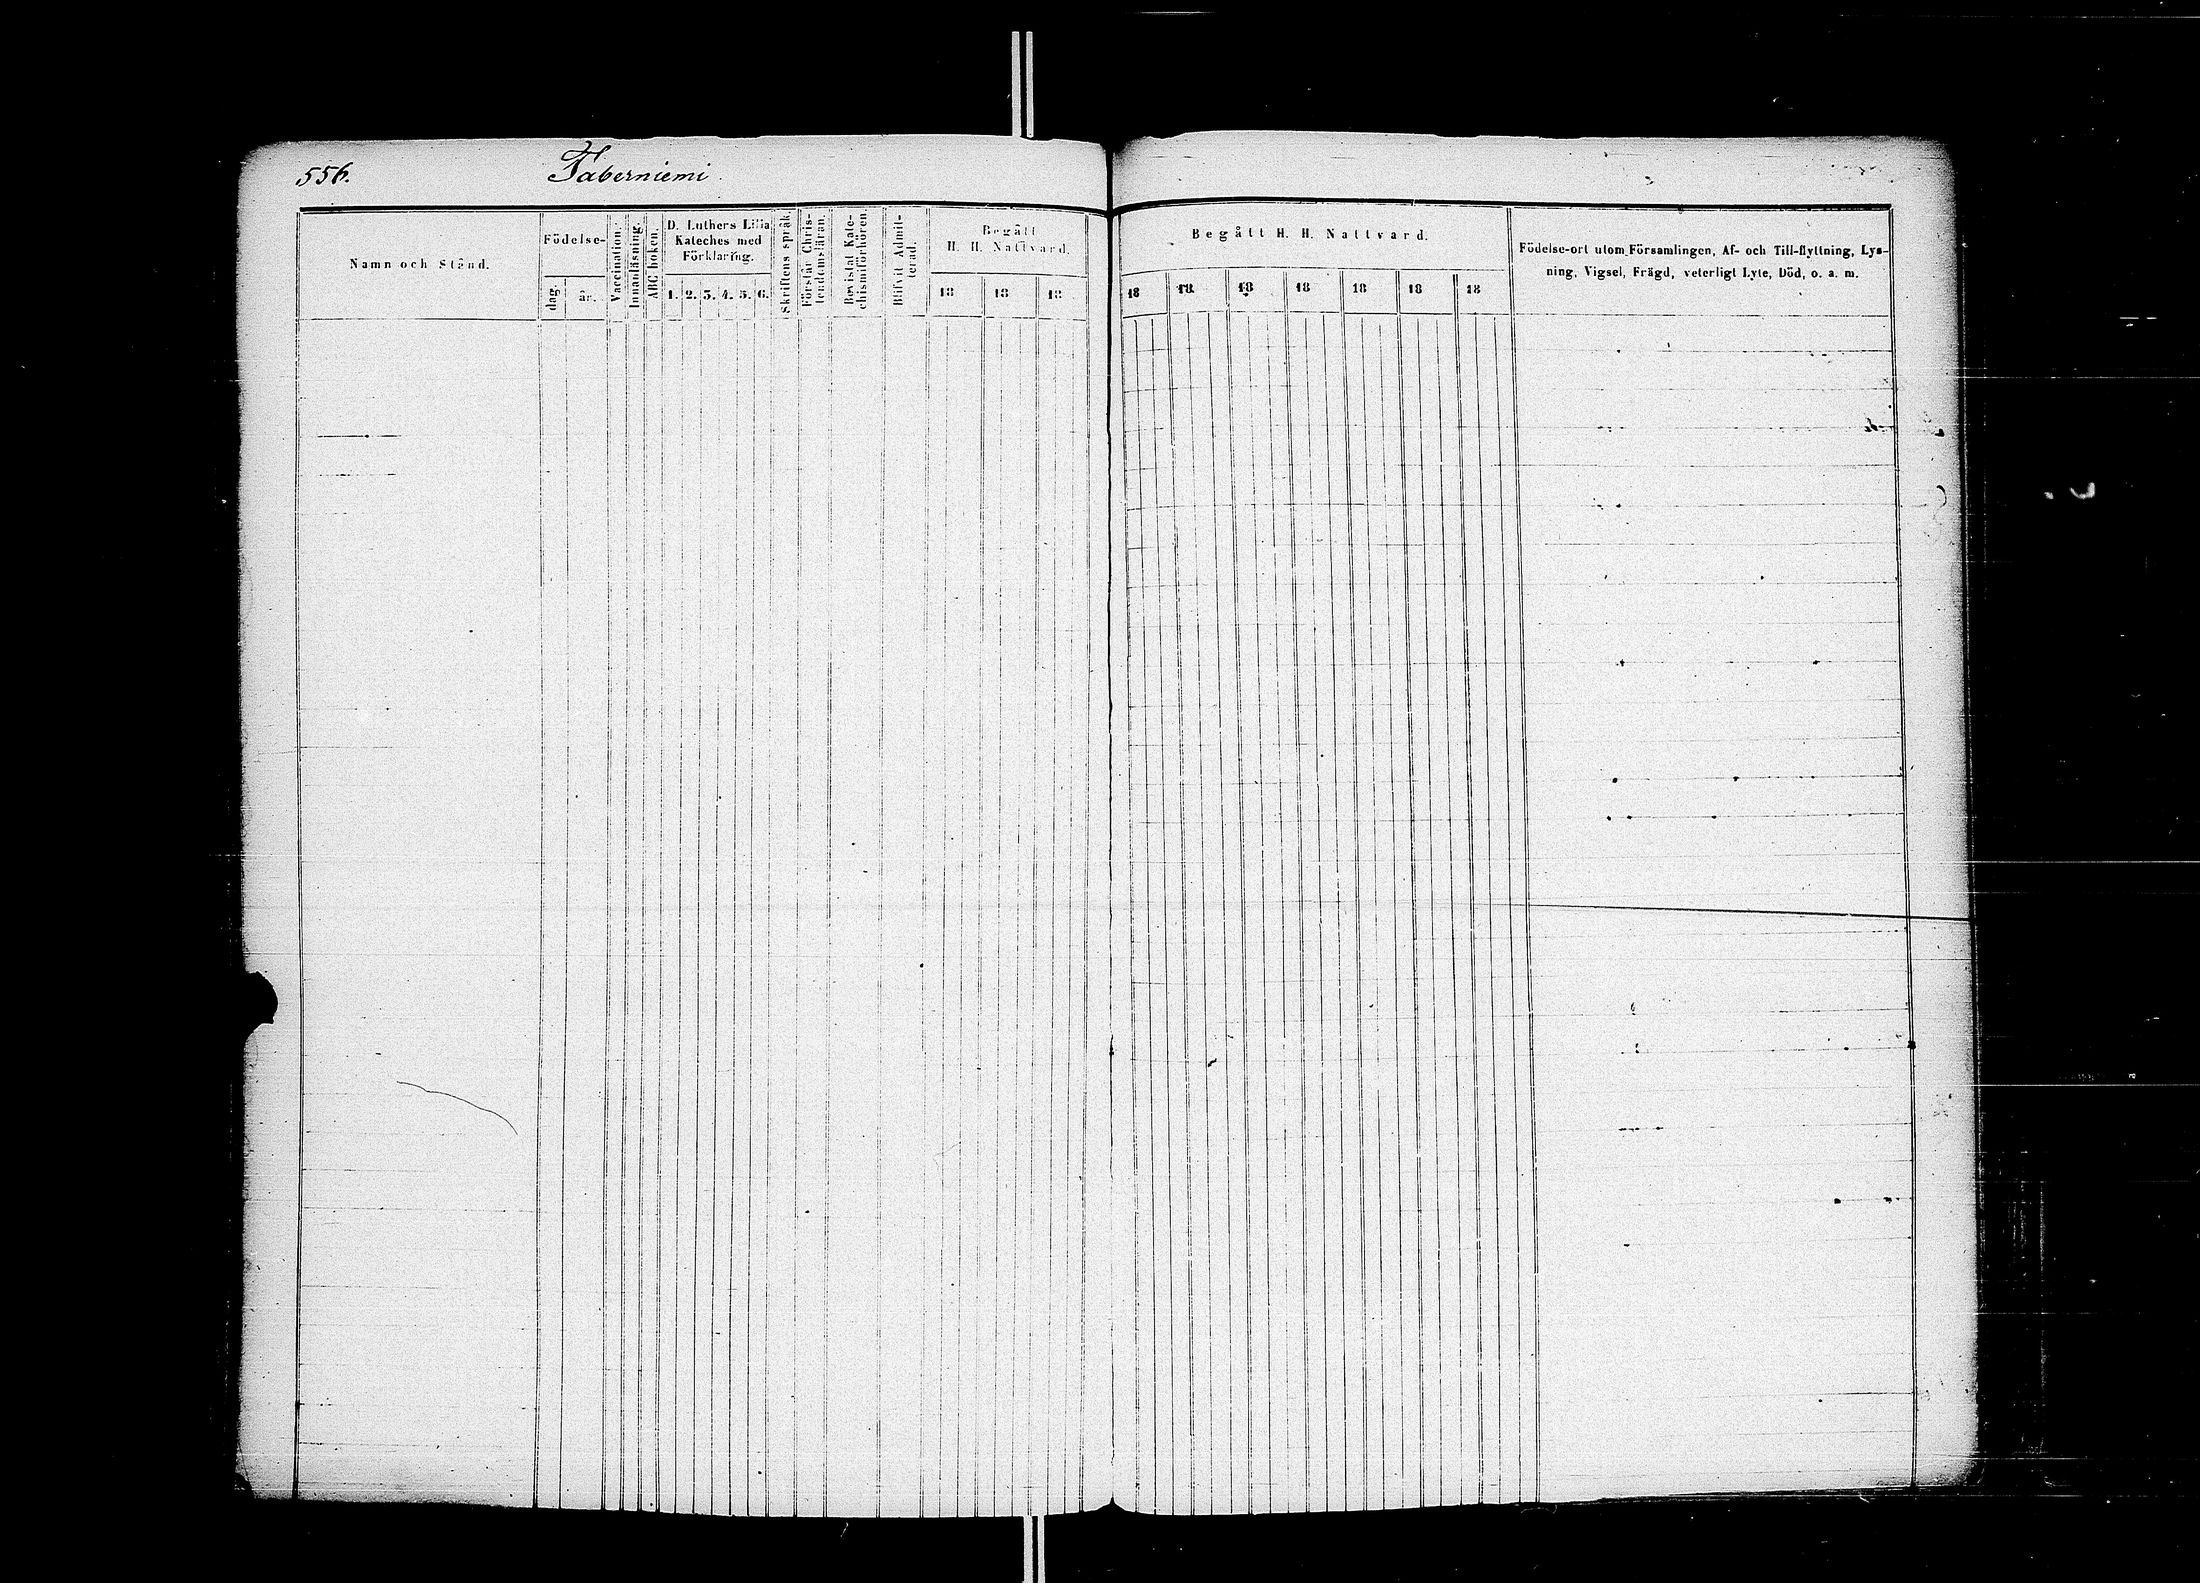 556.
Taberniemi.
Namn och Stånd.
Födelse-
dag.
år.
Vaccination.
Innanläsning.
ABC boken.
D. Luthers Lilla
Kateches med
Förklaring.
1. 2. 3. 4. 5. 6.
Skriftens språk.
Förstår Chris-
tendomsläran.
Bevistat Kate-
chismiförhören.
Blifvit Admit-
terad.
Begått
H. H. Nattvard.
18 18 18
Begått H. H. Nattvard.
18 18 18 18 18 18 18
Födelse-ort utom Församlingen, Af- och Till-flyttning, Lys-
ning, Vigsel, Frägd, veterligt Lyte, Död, o. a. m.